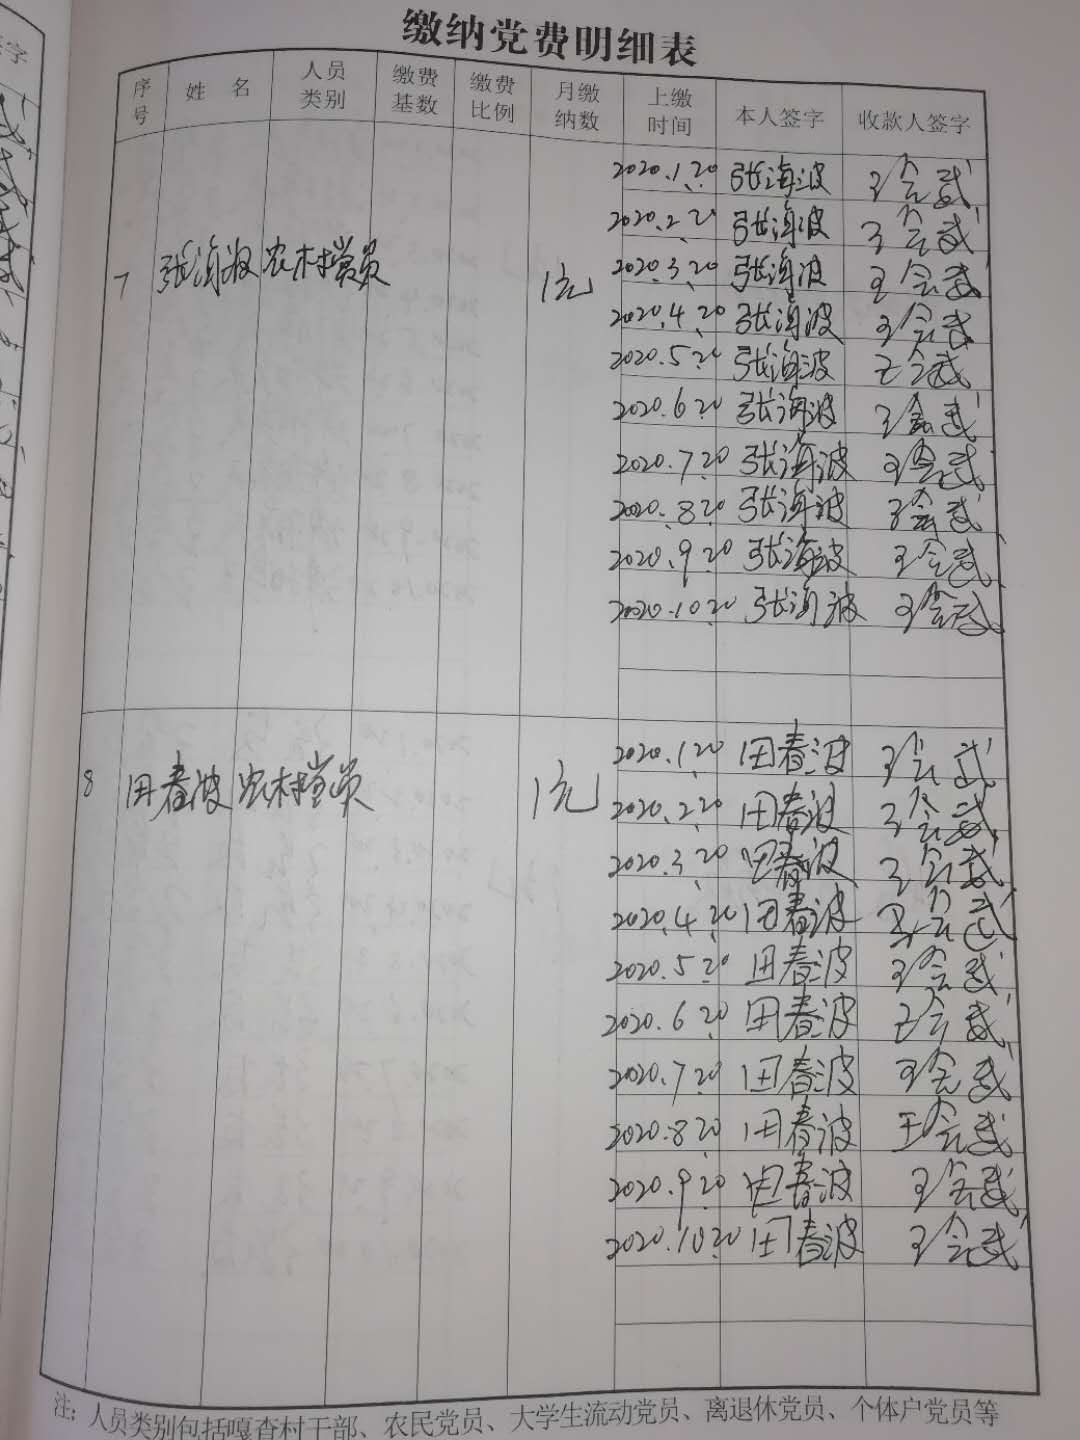 缴纳党费明细表
序号 姓名 人员类别 缴费基数 缴费比例 月缴纳数 上缴时间 本人签字 收款人签字
7 张海波 农村党员 1元
2020.1.20 张海波 王会武
2020.2.20 张海波 王会武
2020.3.20 张海波 王会武
2020.4.20 张海波 王会武
2020.5.20 张海波 王会武
2020.6.20 张海波 王会武
2020.7.20 张海波 王会武
2020.8.20 张海波 王会武
2020.9.20 张海波 王会武
2020.10.20 张海波 王会武
8 田春波 农村党员 1元
2020.1.20 田春波 王会武
2020.2.20 田春波 王会武
2020.3.20 田春波 王会武
2020.4.20 田春波 王会武
2020.5.20 田春波 王会武
2020.6.20 田春波 王会武
2020.7.20 田春波 王会武
2020.8.20 田春波 王会武
2020.9.20 田春波 王会武
2020.10.20 田春波 王会武
注：人员类别包括嘎查村干部、农民党员、大学生流动党员、离退休党员、个体户党员等